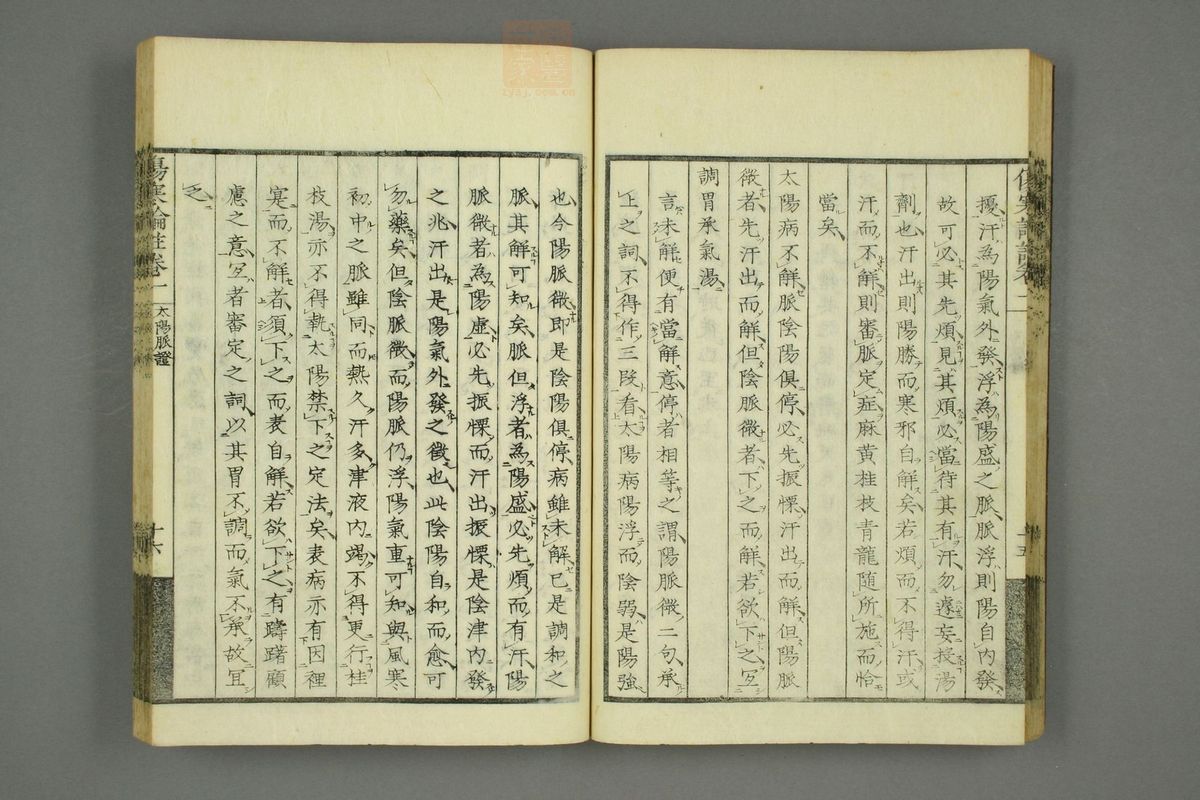 擾汗為陽氣外發浮為陽盛之脈脈浮則陽自內發
故可必其先煩見其煩必當待其有汗勿遽妄投湯
劑也汗出則陽勝而寒邪自解矣若煩而不得汗或
汗而不解則審脈定症麻黃桂枝青龍隨所施而恰
當矣
太陽病不解脈陰陽俱停必先振慄汗出而解但陽脈
微者先汗出而解但陰脈微者下之而解若欲下之宜
調胃承氣湯
言未解便有當解意停者相等之謂陽脈微二句承
上之詞不得作三段看太陽病陽浮而陰弱是陽強
也今陽脈微即是陰陽俱停病雖未解已是調和之
脈其解可知矣脈但浮者為陽盛必先煩而有汗陽
脈微者為陽虛必先振慄而汗出振慄是陰津內發
之兆汗出是陽氣外發之徵也此陰陽自和而愈可
勿藥矣但陰脈微而陽脈仍浮陽氣重可知與風寒
初中之脈雖同而熱久汗多津液內竭不得更行桂
枝湯亦不得執太陽禁下之定法矣表病亦有因裡
寔而不解者須下之而表自解若欲下之有躊躇顧
慮之意宜者審定之詞以其胃不調而氣不承故宜
之
傷寒論註卷一
太陽脈證
十六
十五
zysj.com.cn